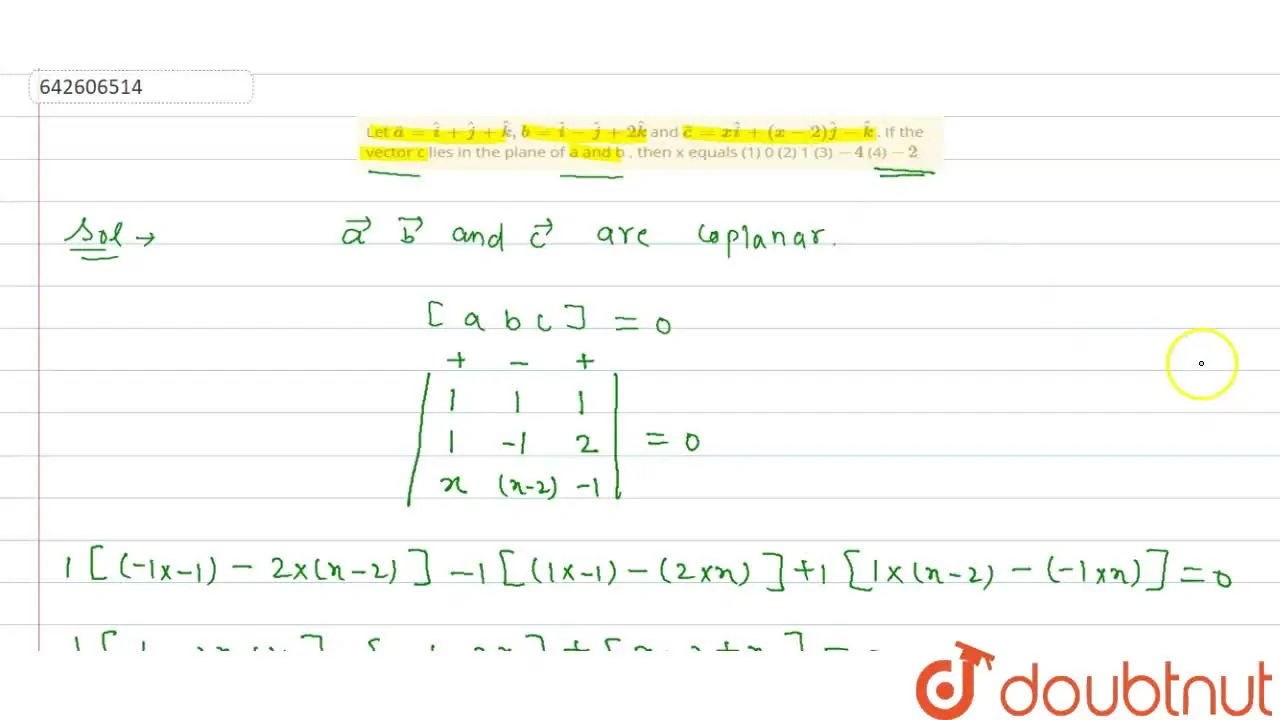 642606514
Let a⃗ = î + ĵ + k̂, b⃗ = î − ĵ + 2k̂ and c⃗ = xî + (x − 2)ĵ − k̂. If the
vector c lies in the plane of a and b , then x equals (1) 0 (2) 1 (3) − 4 (4) − 2
Sol → a⃗ b⃗ and c⃗ are coplanar.
[ a b c ] = 0
+ − +
1 1 1
1 -1 2 = 0
x (x-2) -1
1 [(-1x-1) - 2x(x-2)] -1 [(1x-1) - (2xx)] +1 [1x(x-2) - (-1xx)] = 0
doubtnut